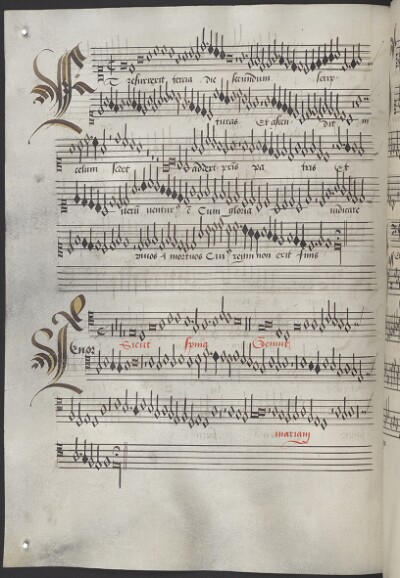 Et resurrexit tercia die secundum scrip
turas Et ascen dit in
celum sedet ad dexte pris
pa tris Et
iteru ventur9 e Cum gloria iudicare
vivos mortuos Cui9 regni non erit finis
Tenor Sicut spina
mariam